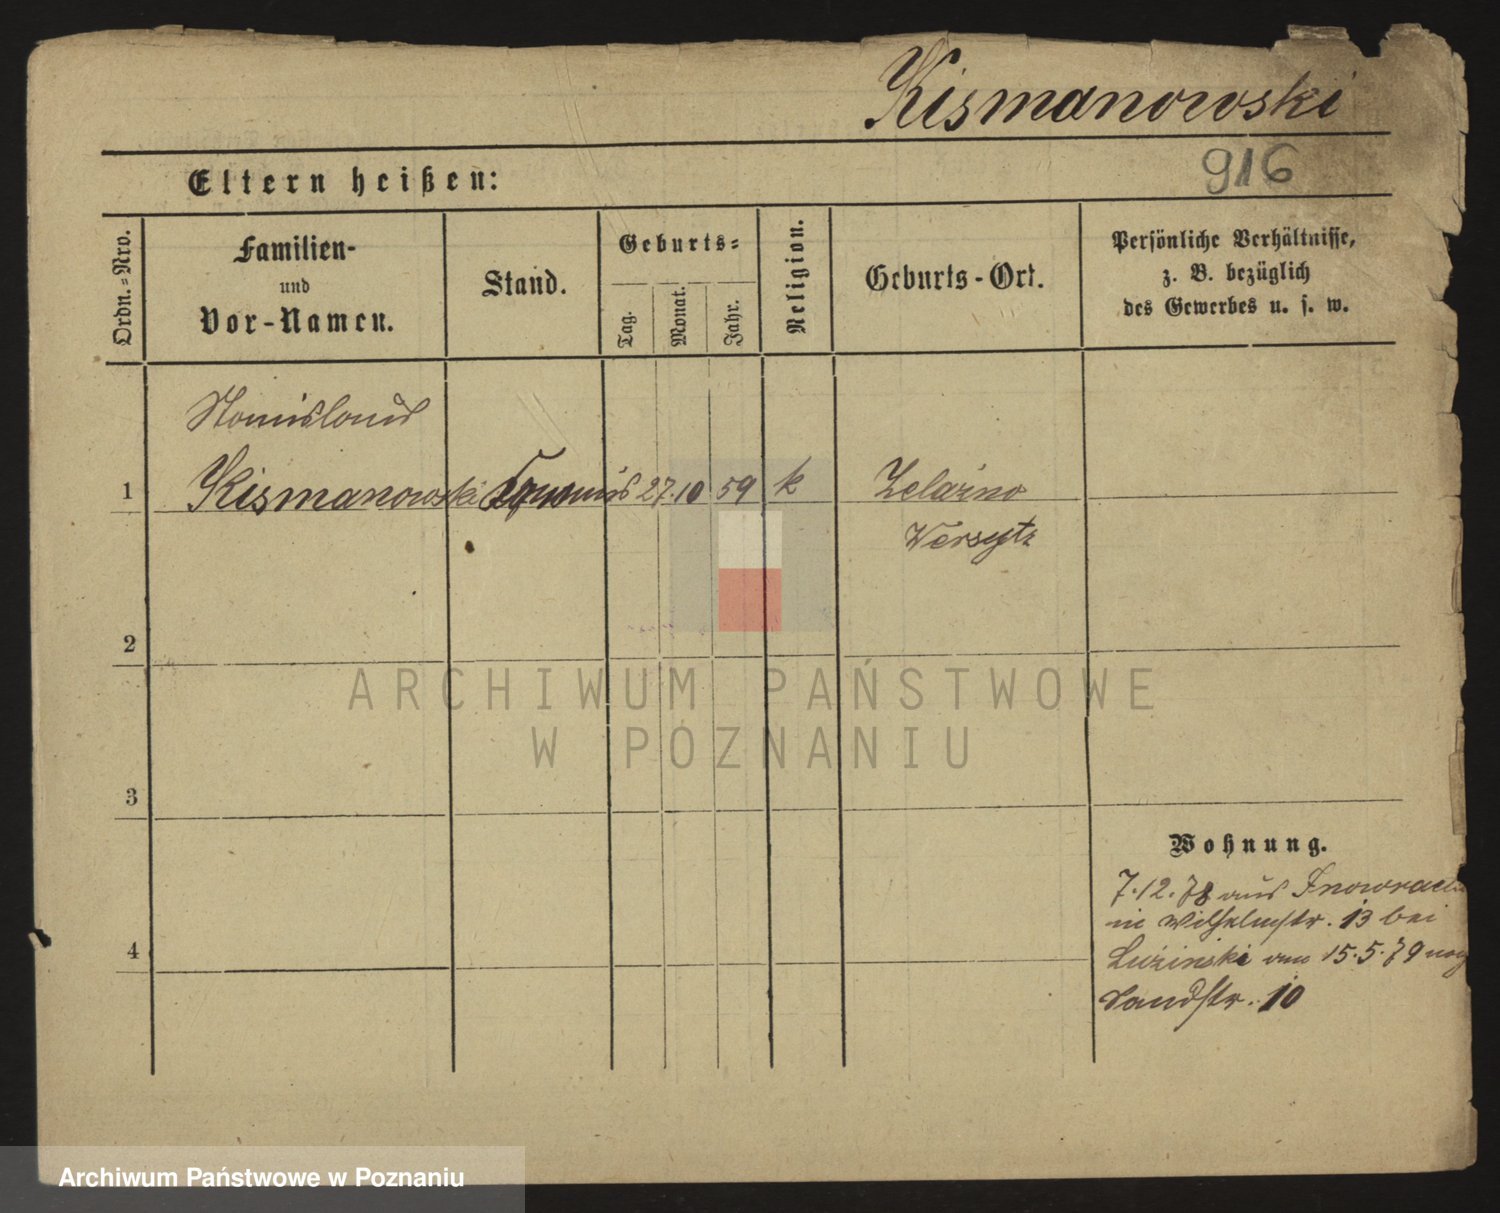 Kismanowski
916
Eltern heißen:
Ordn.-Nro.
Familien-
und
Vor-Namen.
Stand.
Geburts-
Tag.
Monat.
Jahr.
Religion.
Geburts-Ort.
Persönliche Verhältnisse,
z. B. bezüglich
des Gewerbes u. s. w.
Stanislaus
1 Kismanowski 27. 10 59 k Zelazno
2
3
4
Wohnung.
7.12.78 aus Inowracl
in Wilhelmstr. 13 bei
am 15.5.79 nach
Sandstr. 10
ARCHIWUM PAŃSTWOWE
W POZNANIU
Archiwum Państwowe w Poznaniu